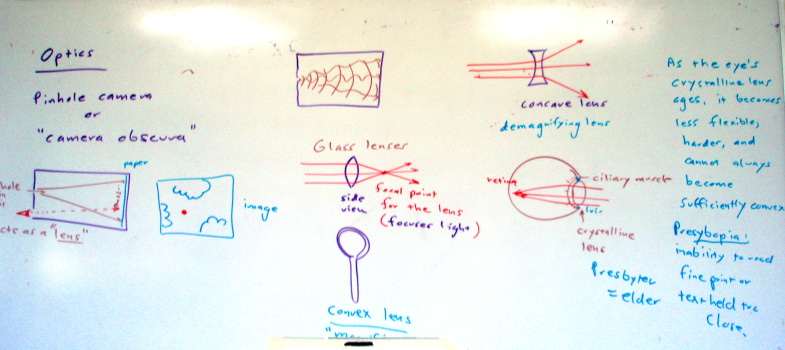 Optics
Pinhole camera
or
"camera obscura"
paper
hole
in
image
cts as a "lens"
Glass lenses
side
view
focal point
for the lens
(focuses light)
convex lens
concave lens
demagnifying lens
retina
ciliary muscle
iris
crystalline
lens
Presbyter
= elder
As the eye's
crystalline lens
ages, it becomes
less flexible,
harder, and
cannot always
become
sufficiently convex
Presybopia:
inability to read
fine print or
text held too
close.